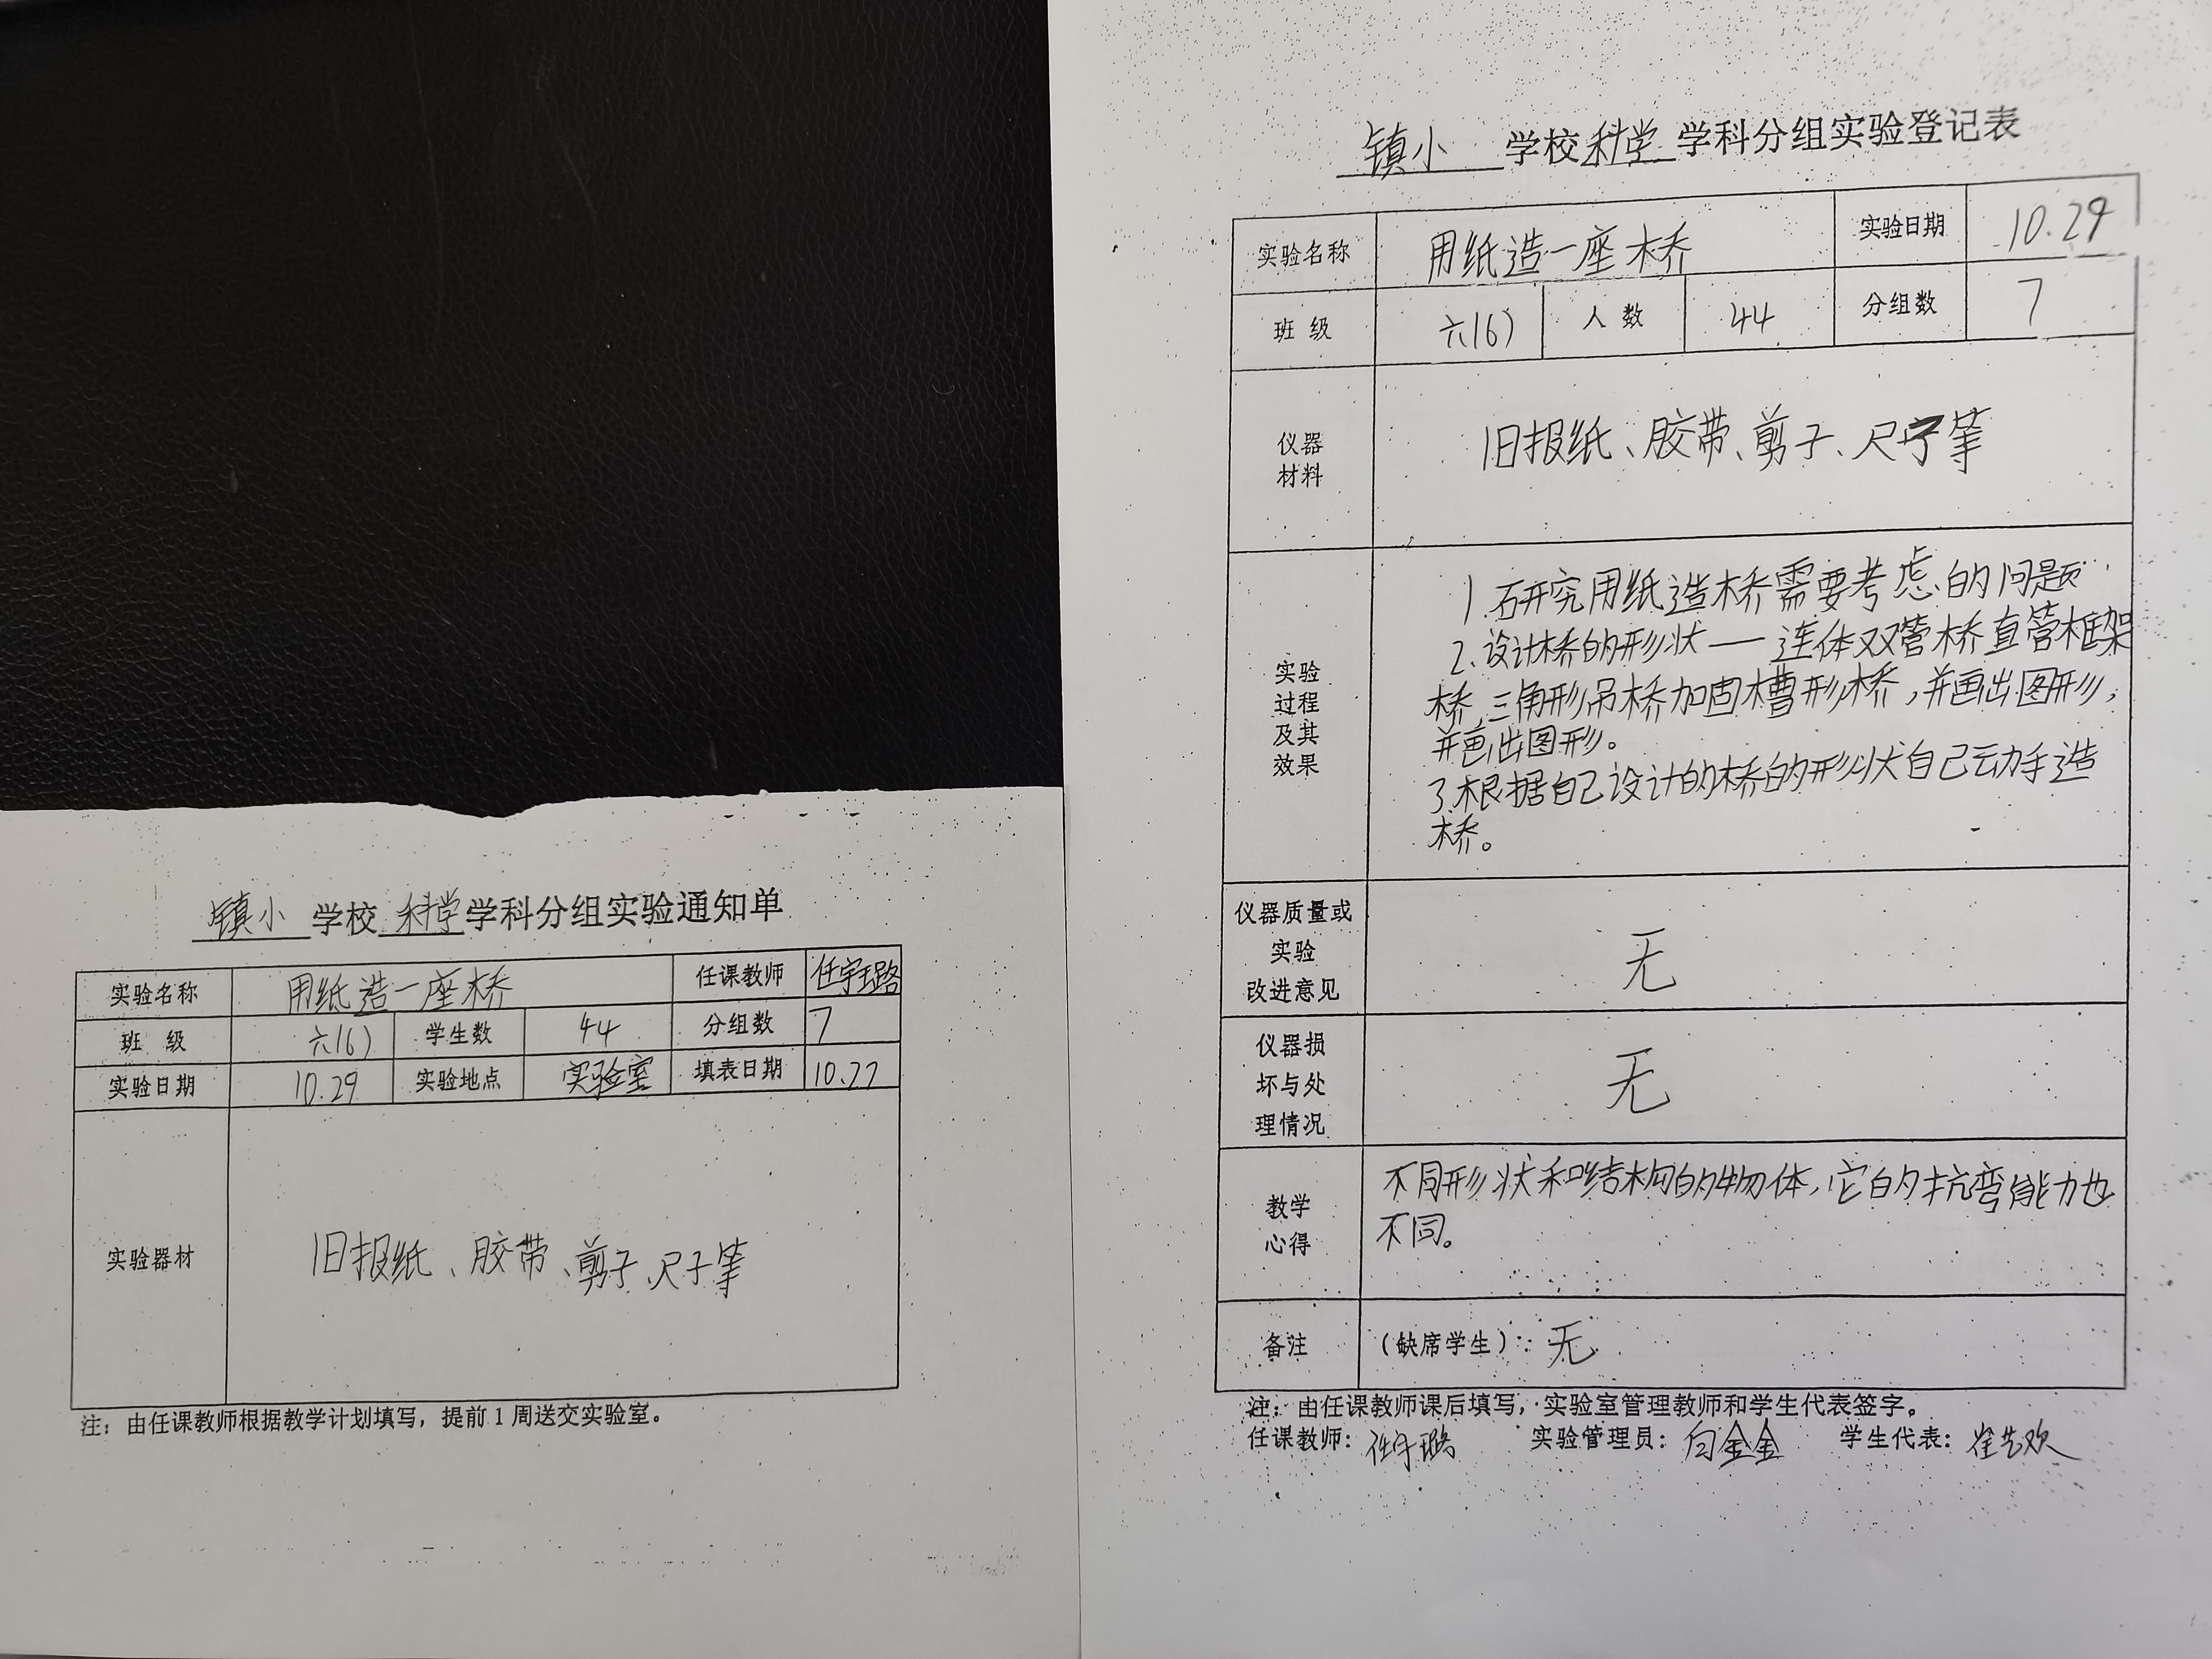 镇小 学校 科学 学科分组实验通知单
实验名称 用纸造一座桥 任课教师 任宇璐
班 级 六(6) 学生数 44 分组数 7
实验日期 10.29 实验地点 实验室 填表日期 10.22
实验器材 旧报纸、胶带、剪子、尺子等
注：由任课教师根据教学计划填写，提前1周送交实验室。
镇小 学校 科学 学科分组实验登记表
实验名称 用纸造一座桥 实验日期 10.29
班 级 六(6) 人 数 44 分组数 7
仪器
材料
旧报纸、胶带、剪子、尺子等
实验
过程
及其
效果
1.研究用纸造桥需要考虑的问题
2.设计桥的形状——连体双管桥直管框架
桥,三角形吊桥加固槽形桥,并画出图形,
并画出图形。
3.根据自己设计的桥的形状自己动手造
桥。
仪器质量或
实验
改进意见
无
仪器损
坏与处
理情况
无
教学
心得
不同形状和结构的物体,它的抗弯能力也
不同。
备注 （缺席学生）：无
注：由任课教师课后填写，实验室管理教师和学生代表签字。
任课教师：任宇璐 实验管理员：白金金 学生代表：